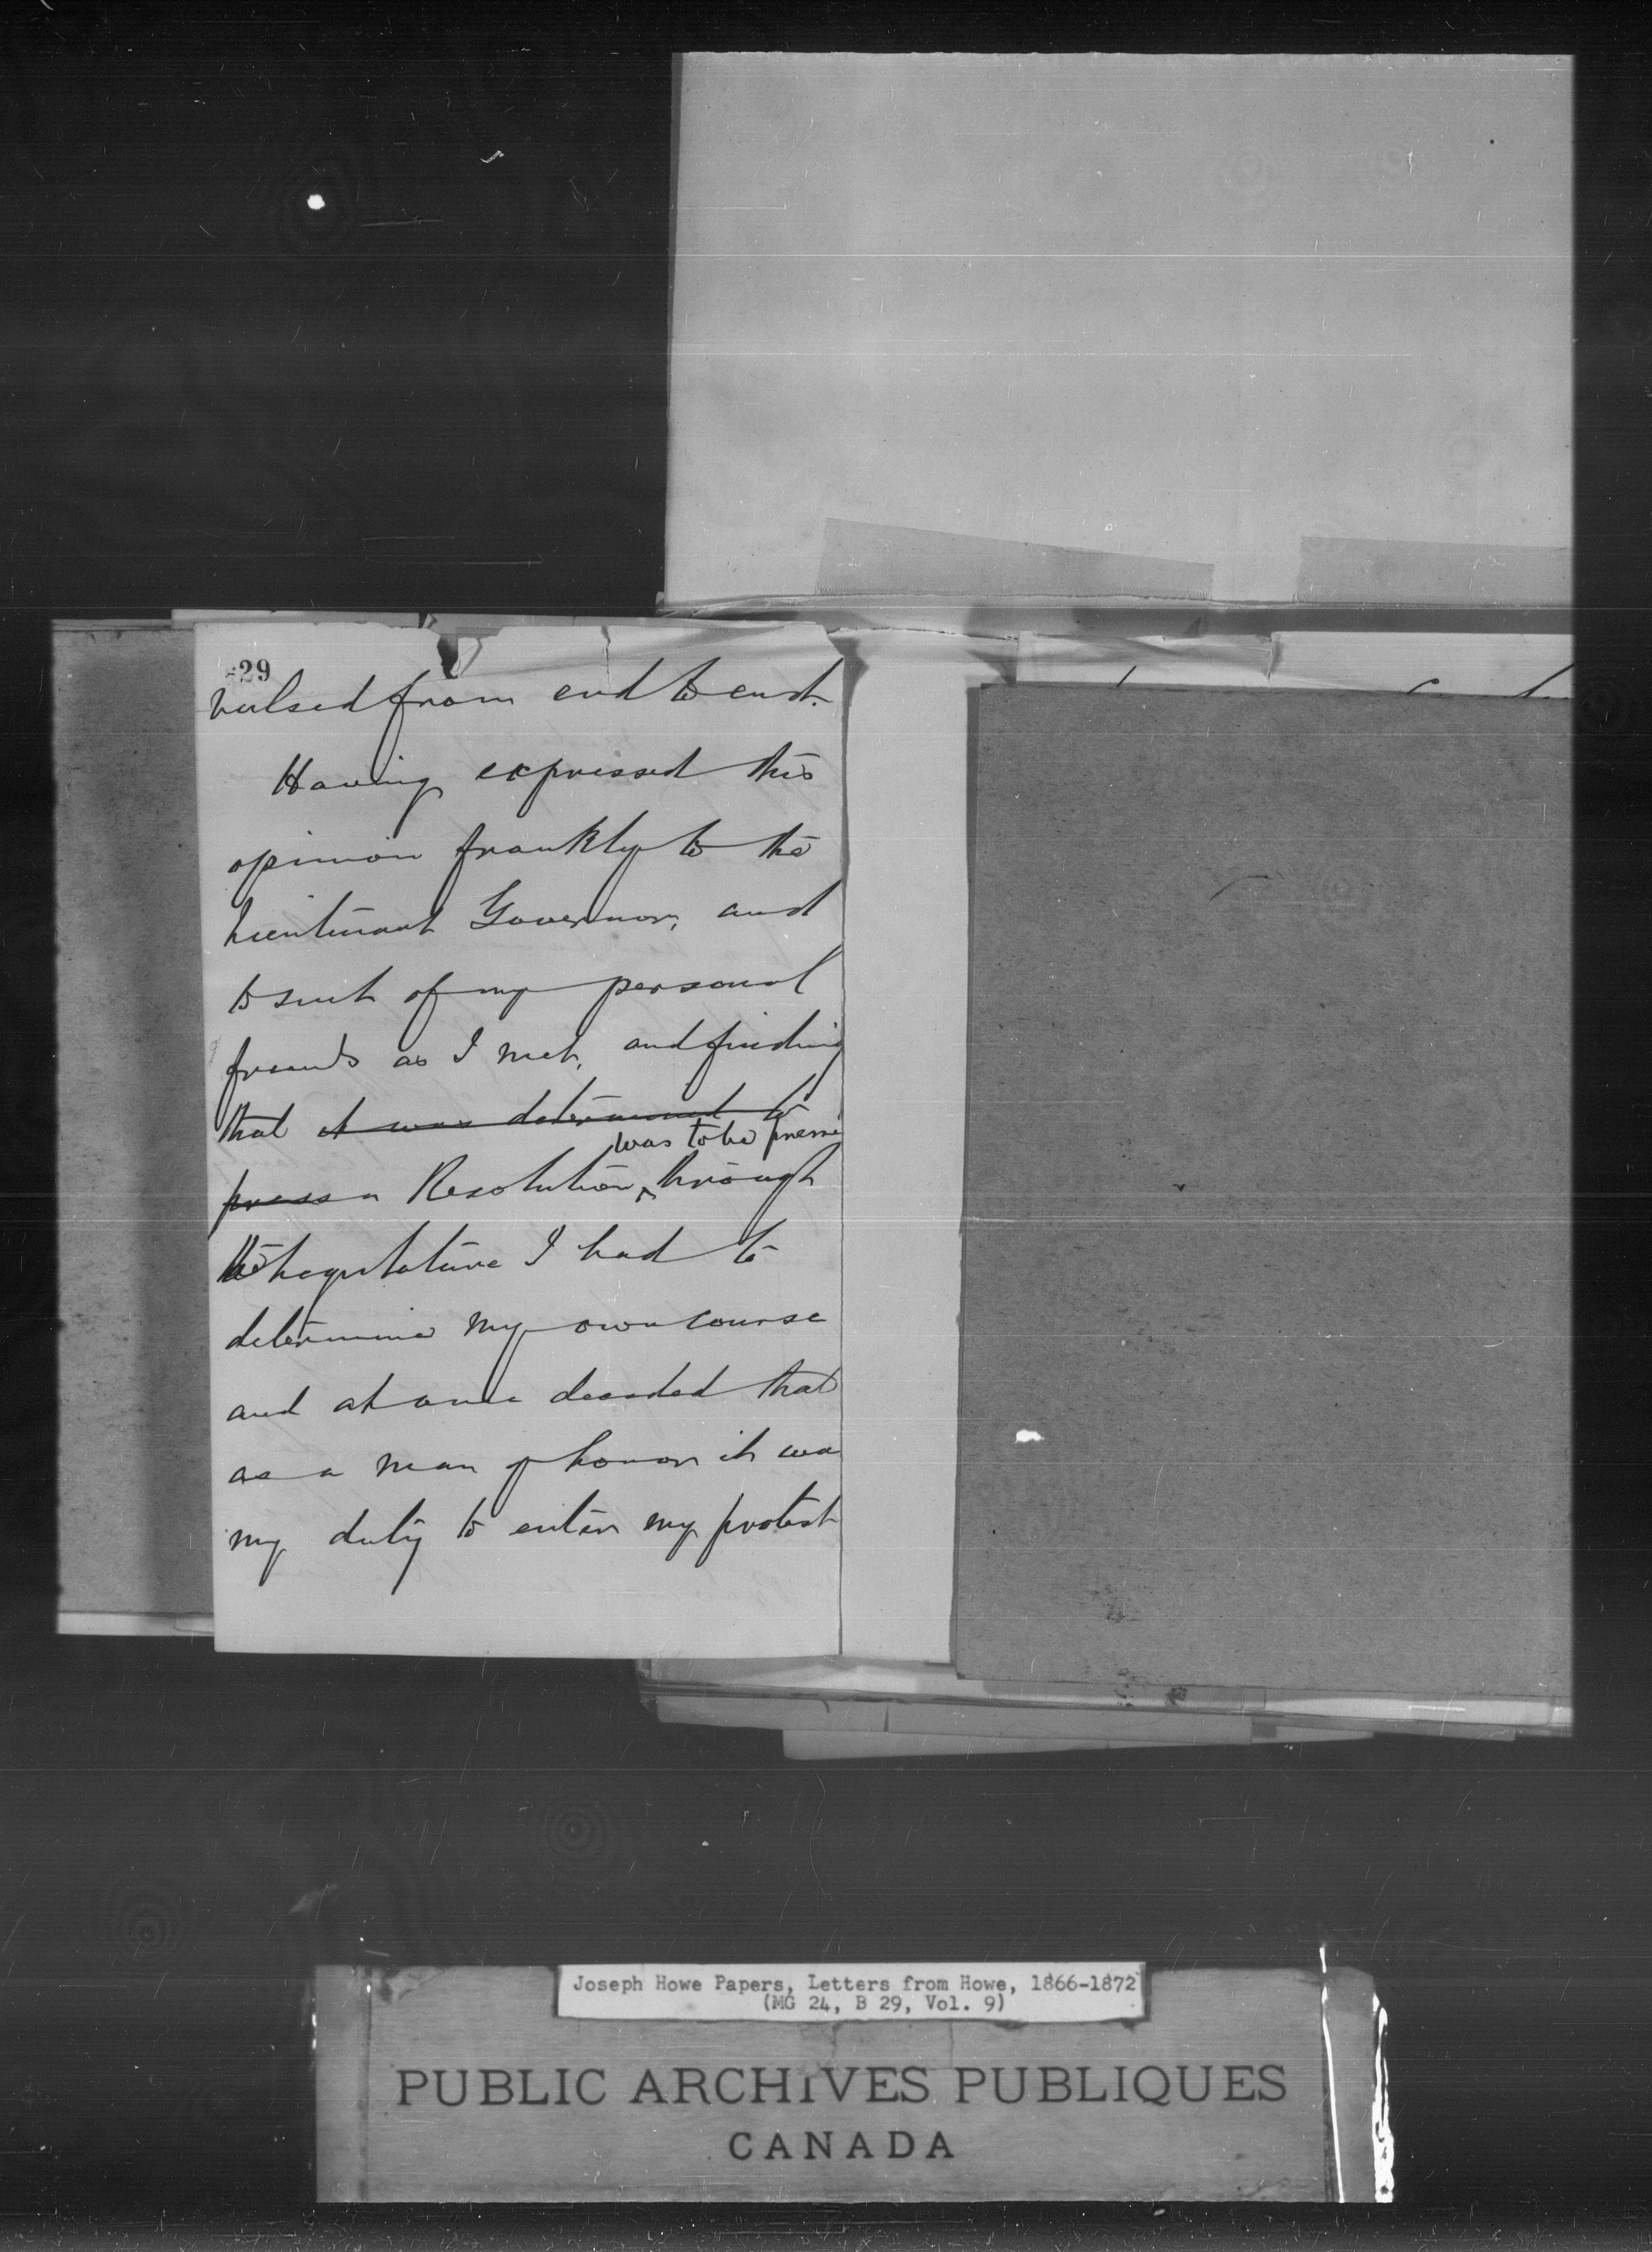 29
vulsed from end to end.
Having expressed this
opinion frankly to the
Lieutenant Governor, and
to such of my personal
friends as I met, and finding
that it was determined to
was to be presse
press a Resolution, through
the Legislature I had to
determine my own course
and at once decided that
as a man of honor it was
my duty to enter my protest
Joseph Howe Papers, Letters from Howe, 1866-1872
(MG 24, B 29, Vol. 9)
PUBLIC ARCHIVES PUBLIQUES
CANADA